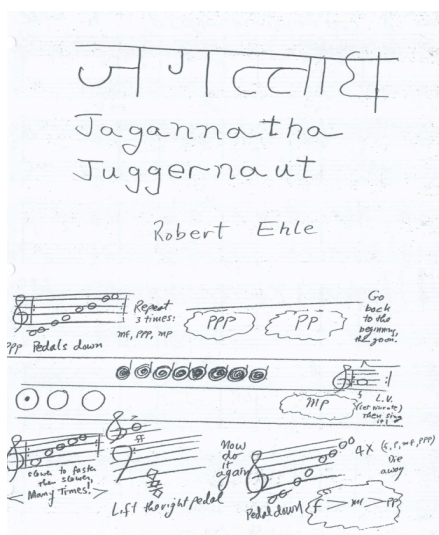 Jagannatha
Juggernaut
Robert Ehle
Repeat
3 times:
mf, ppp, mp
PPP
PP
Go
back
to the
beginning,
PPP Pedals down
MP
L.V.
(let vibrate)
then sing
slower to faster
then slower,
Many Times!
ff
Lift the right pedal
Now
do
it
again
4X (f, p, mf, ppp)
Die
away
Pedal down
f > mf > pp